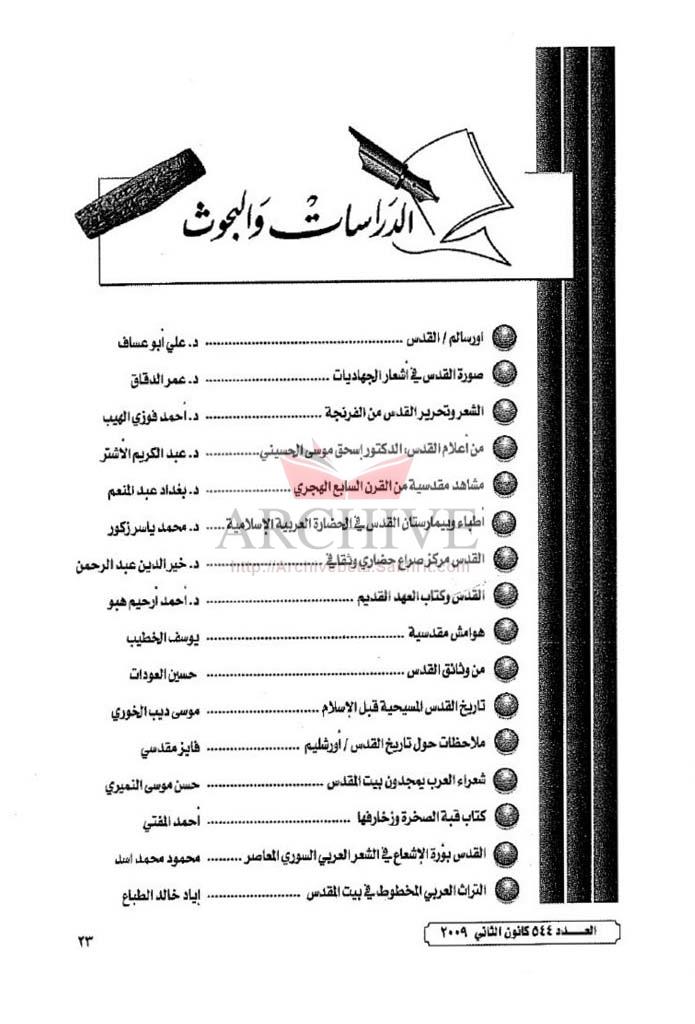 الدراسات والبحوث
اورسالم / القدس ........ د. علي أبو عساف
صورة القدس في أشعار الجهاديات ........ د. عمر الدقاق
الشعر وتحرير القدس من الفرنجة ........ د. أحمد فوزي الهيب
من أعلام القدس: الدكتور إسحق موسى الحسيني ........ د. عبد الكريم الأشتر
مشاهد مقدسية من القرن السابع الهجري ........ د. بغداد عبد المنعم
أطباء وبيمارستان القدس في الحضارة العربية الإسلامية ..... د. محمد ياسر زكور
القدس مركز صراع حضاري وثقافي ........ د. خير الدين عبد الرحمن
القدس وكتاب العهد القديم ........ د. أحمد أرحيم هبو
هوامش مقدسية ........ يوسف الخطيب
من وثائق القدس ........ حسين العودات
تاريخ القدس المسيحية قبل الإسلام ........ موسى ديب الخوري
ملاحظات حول تاريخ القدس / أورشليم ........ فايز مقدسي
شعراء العرب يمجدون بيت المقدس ........ حسن موسى النميري
كتاب قبة الصخرة وزخارفها ........ أحمد المفتي
القدس بؤرة الإشعاع في الشعر العربي السوري المعاصر ........ محمود محمد أسد
التراث العربي المخطوط في بيت المقدس ........ إياد خالد الطباع
العـــدد ٥٤٤ كانون الثاني ٢٠٠٩
٢٣
ARCHIVE